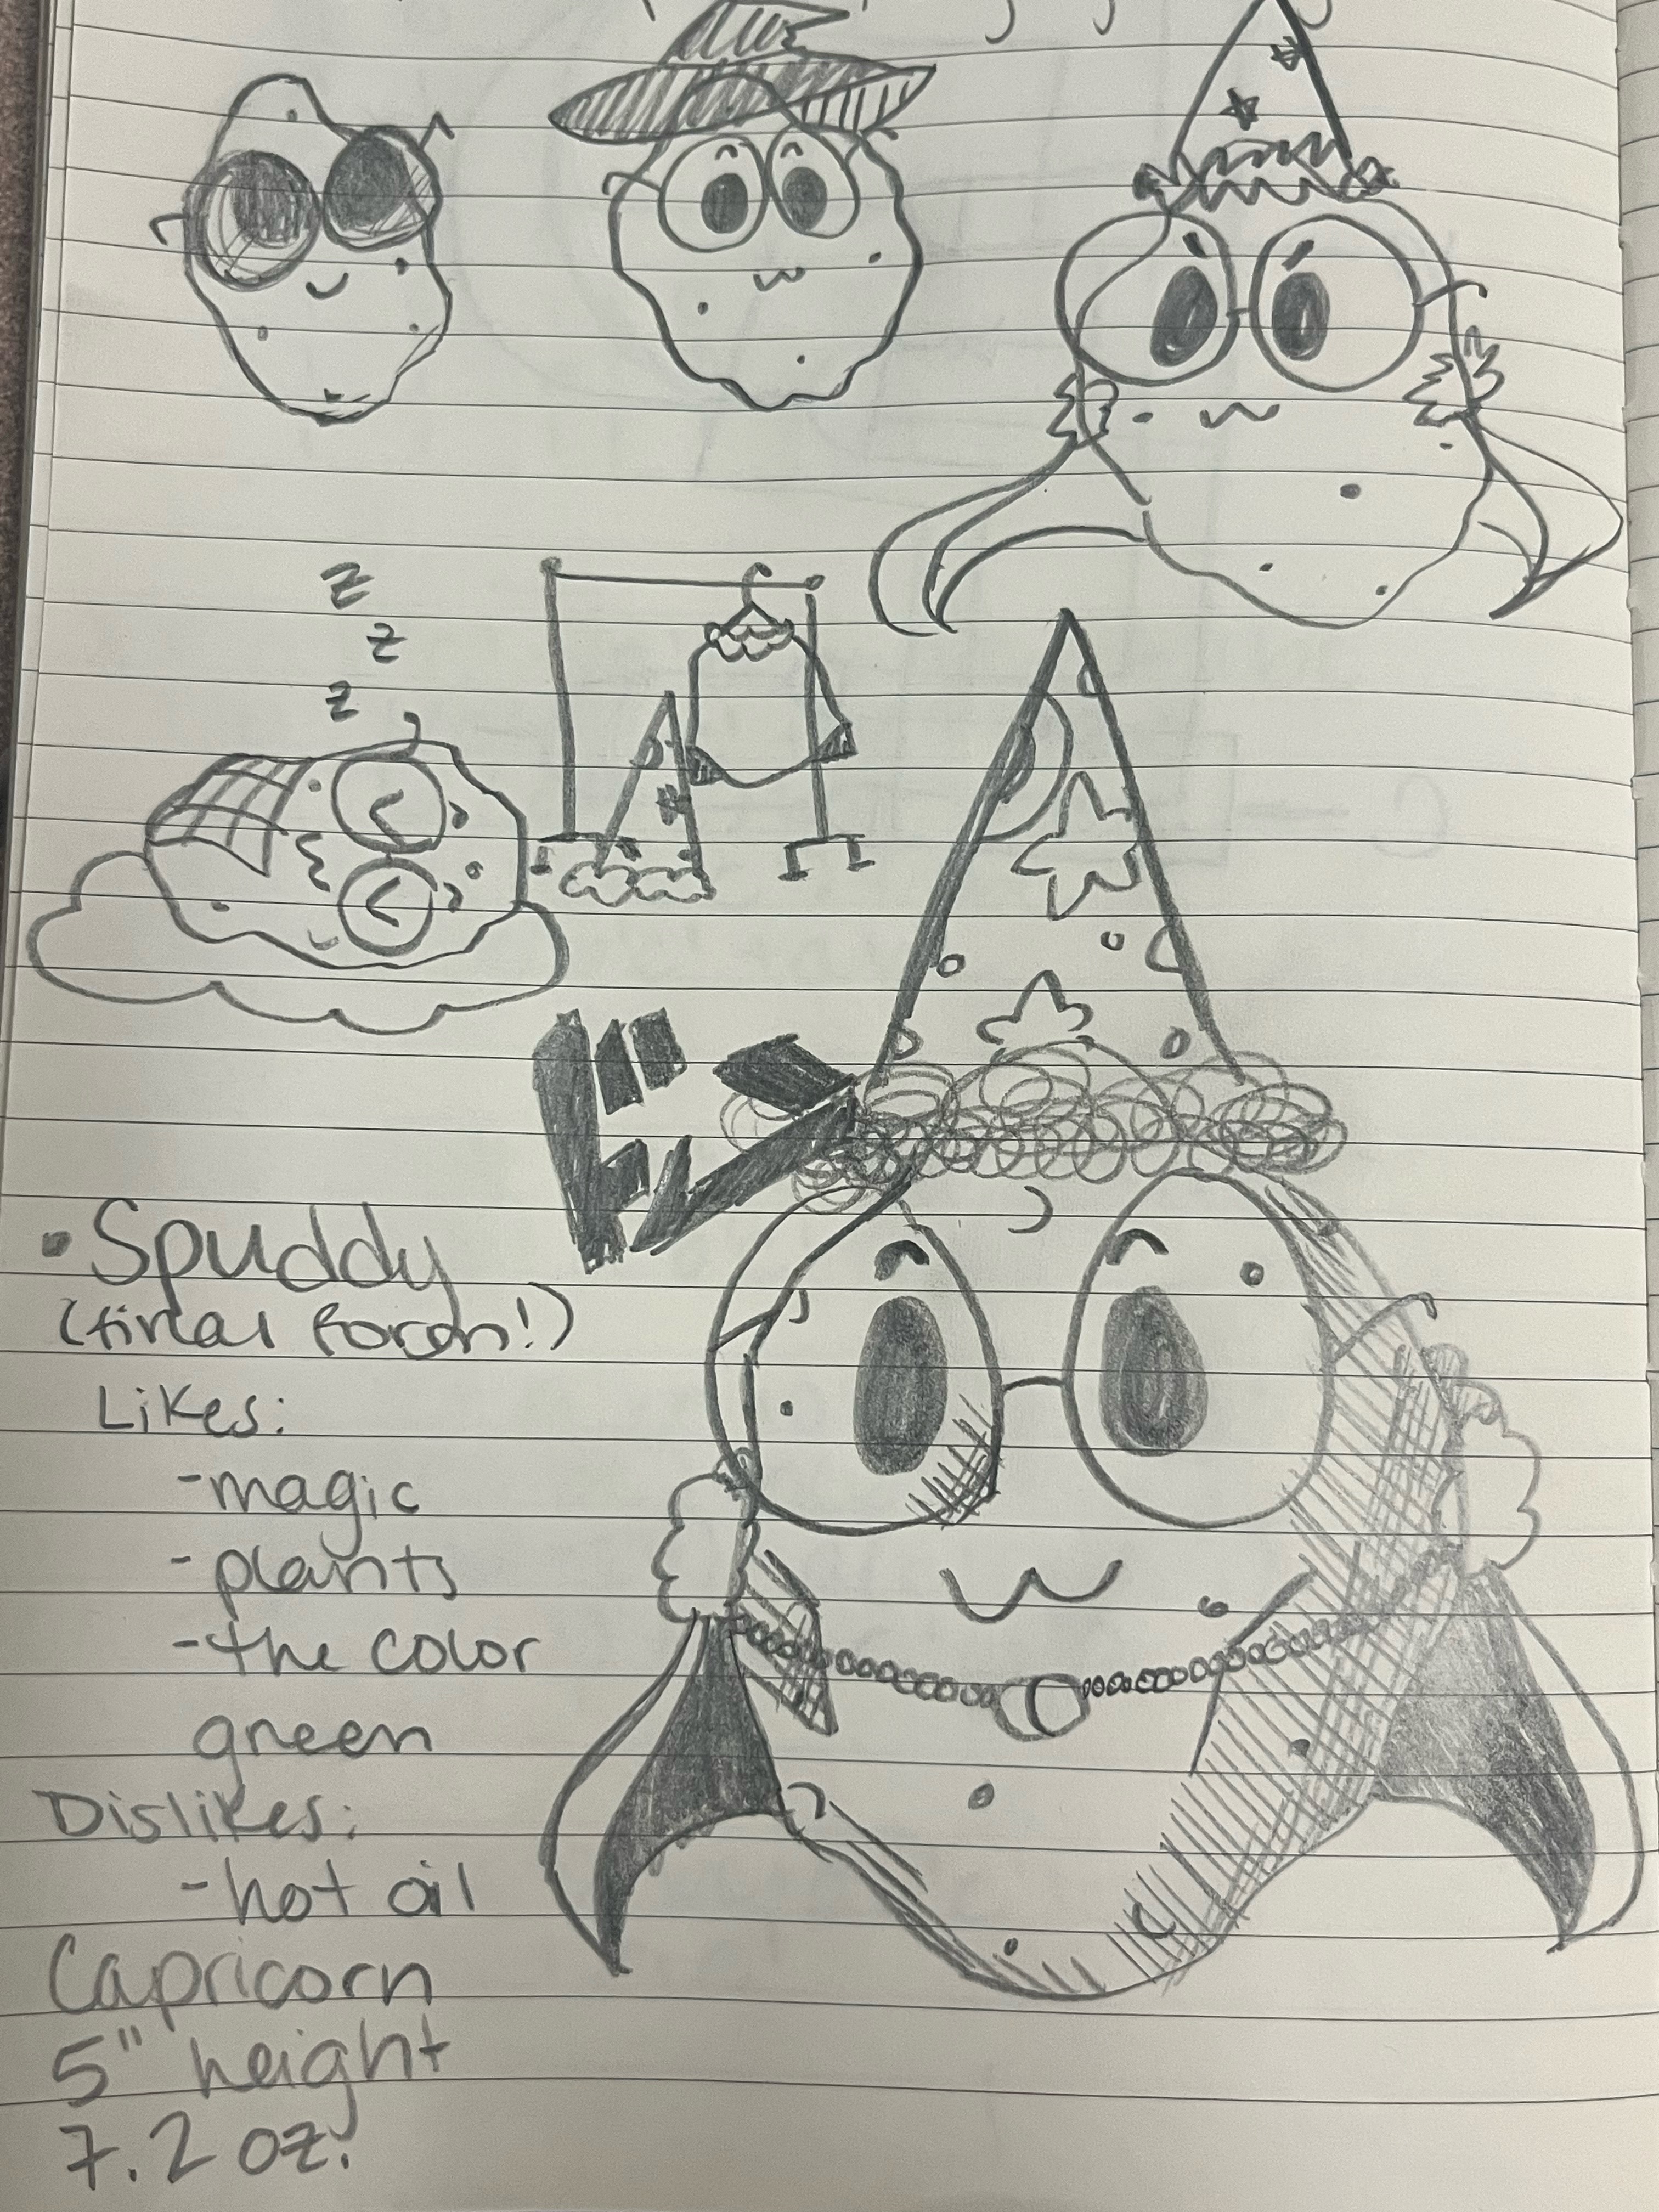 z
z
z
• Spuddy
(final form!)
Likes:
-magic
-plants
-the color
green
Dislikes:
-hot oil
Capricorn
5" height
7.2 oz.